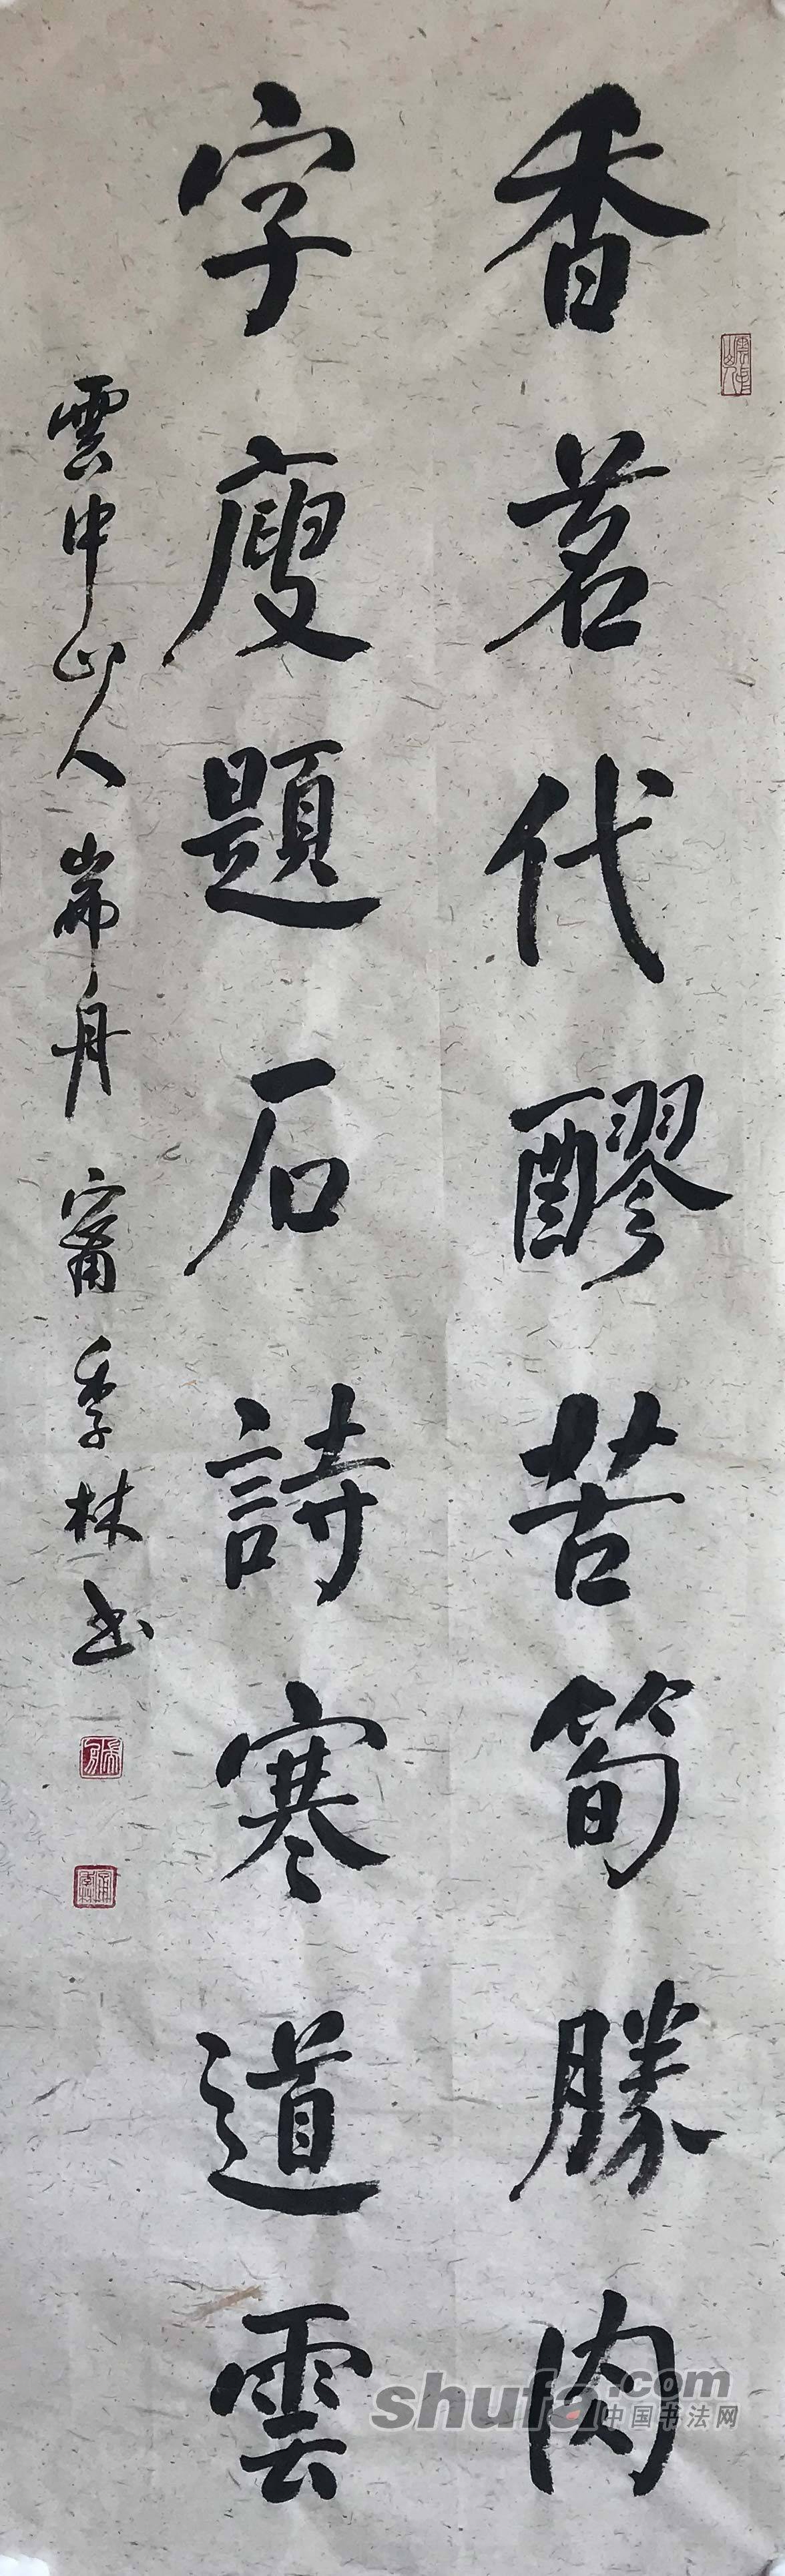 香茗代醪苦筍勝肉
字廋題石詩寒道雲
雲中山人 耑舟 甯季林书
shufa.com
中国书法网